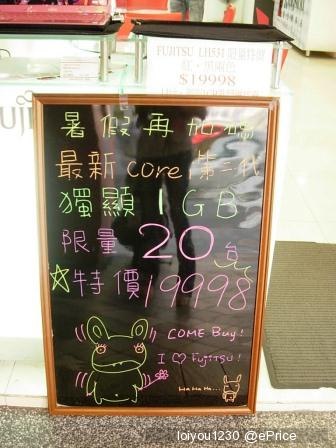 FUJITSU LH531 限量特價
紅，黑兩色
$19998
暑假再加碼
最新core i 第二代
獨顯 1GB
限量 20台
特價 19998
COME Buy!
I ♡ Fujitsu!
HaHaHa...
loiyou1230 @ePrice